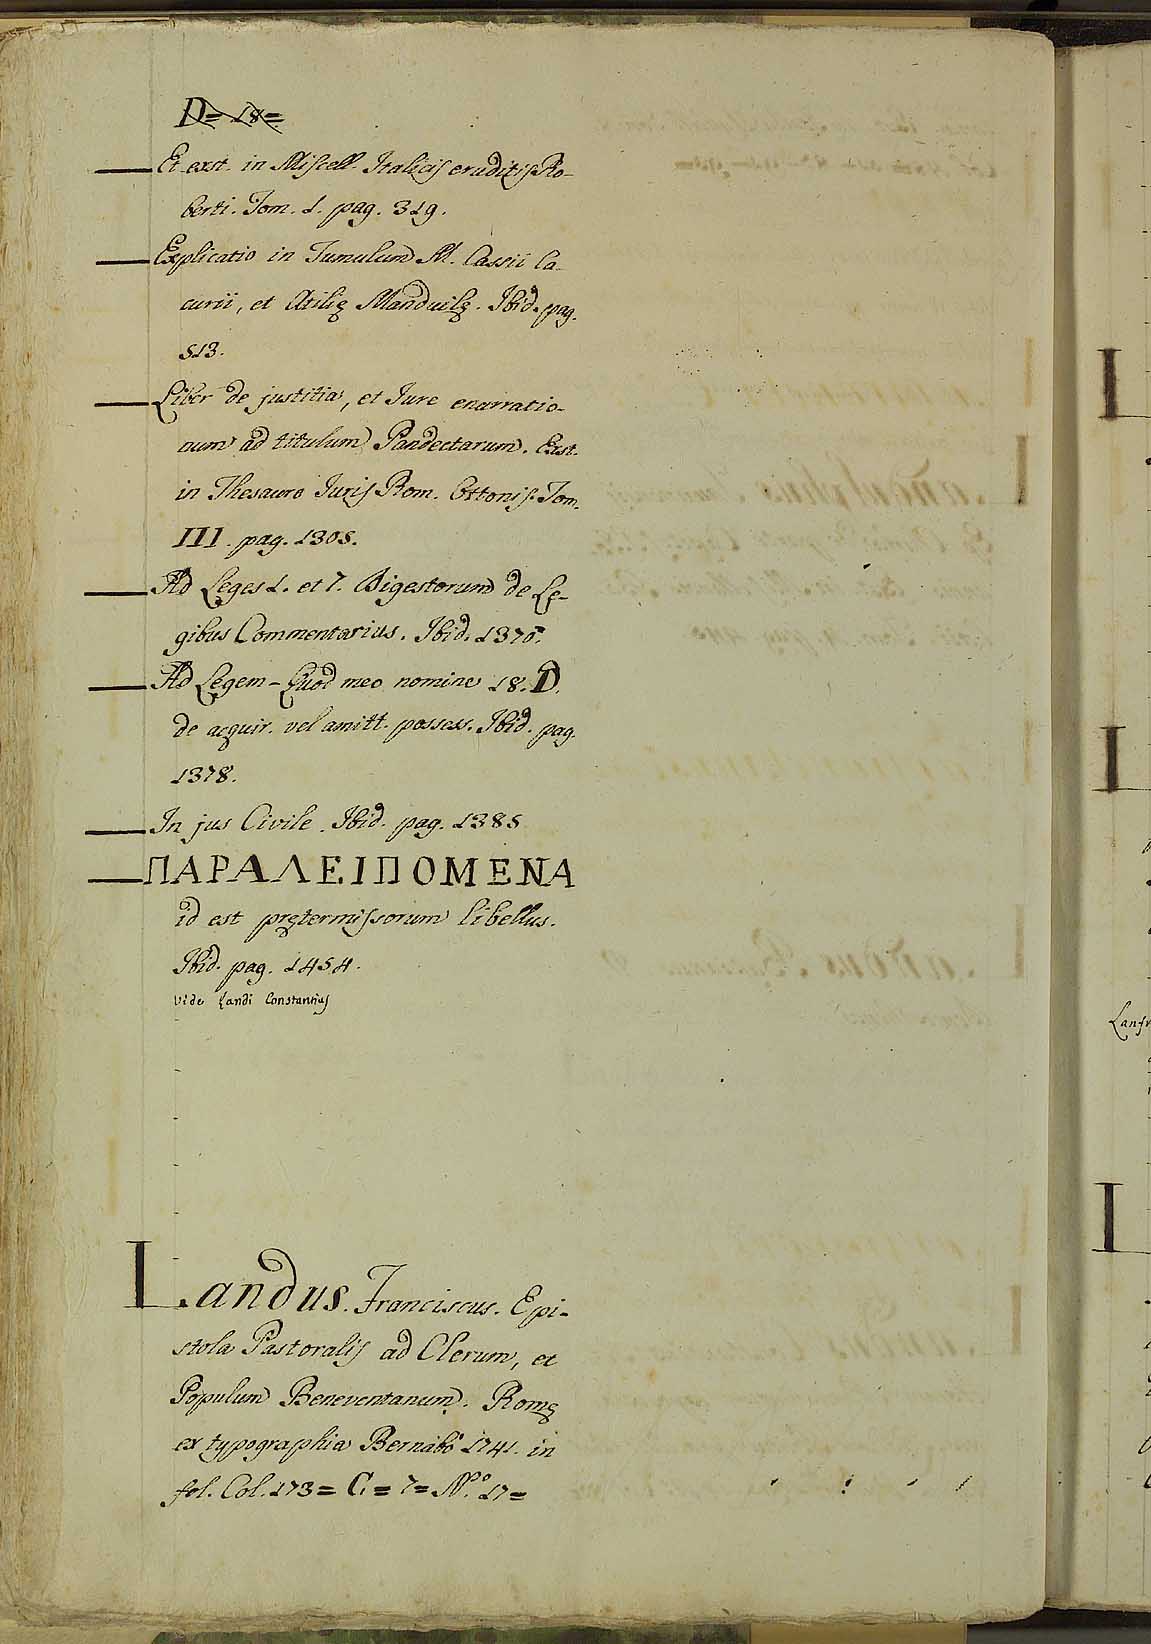 D= 18=
— Et exst. in Miscell. Italicis eruditis Ro-
berti. Tom. 1. pag. 319.
— Explicatio in Tumulum M. Cassii Ca-
curii, et Atilię Manduilę. Ibid. pag.
513.
— Liber de justitia, et Jure enarratio-
num ad titulum Pandectarum. Exst.
in Thesauro Juris Rom. Ottonis. Tom.
III. pag. 1305.
— Ad Leges 1. et 7. Digestorum de Le-
gibus Commentarius. Ibid. 1370.
— Ad Legem - Quod meo nomine 18. D.
de acquir. vel amitt. possess. Ibid. pag.
1378.
— In jus Civile. Ibid. pag. 1385
— ΠΑΡΑΛΕΙΠΟΜΕΝΑ
id est prętermissorum libellus.
Ibid. pag. 1454.
vide Landi Constantius
Landus. Franciscus. Epi-
stola Pastoralis ad Clerum, et
Populum Beneventanum. Romę
ex typographia Bernabò 1741. in
fol. Col. 173= C= 7= N.º 17=
Lanfr